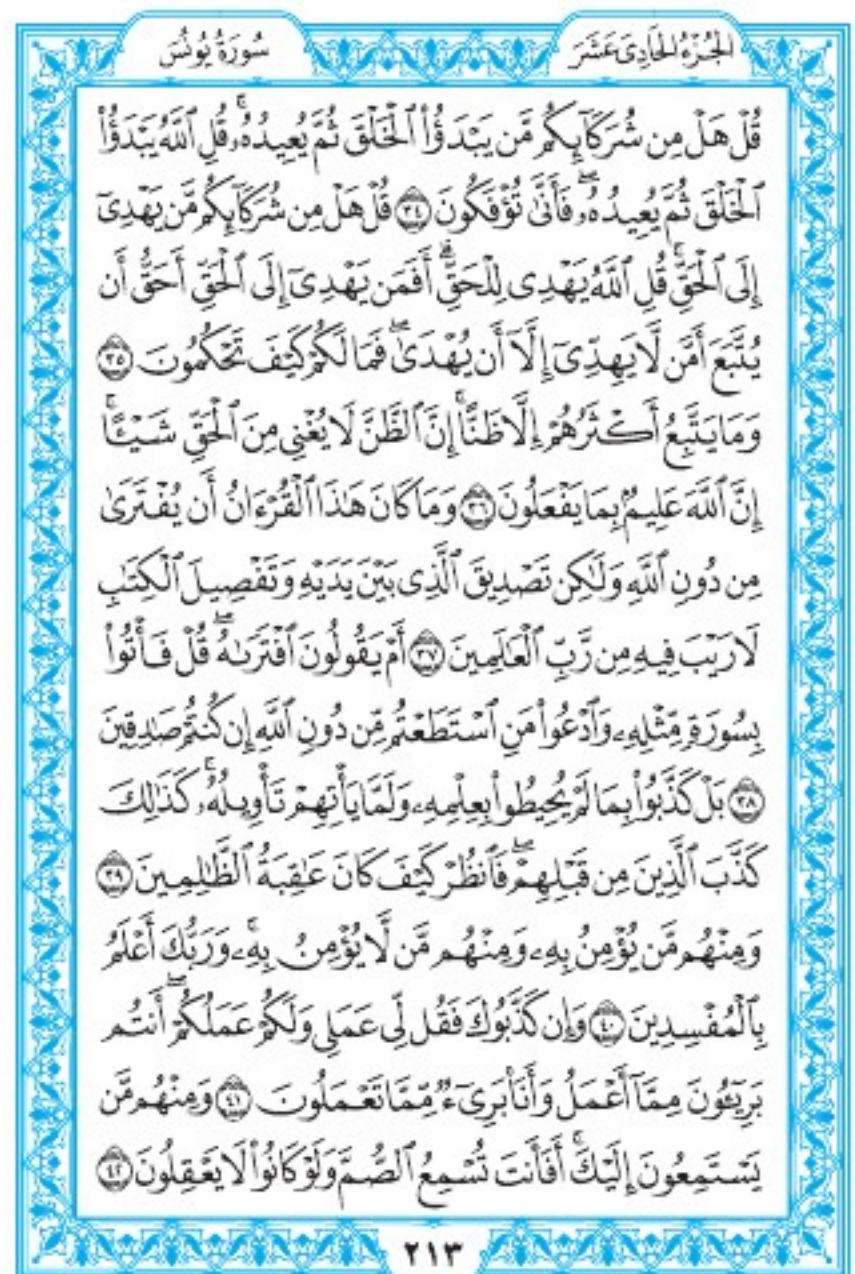 الجُزْءُ الحَادِىَ عَشَرَ
سُورَةُ يُونُسَ
قُلْ هَلْ مِن شُرَكَآئِكُم مَّن يَبْدَؤُا۟ ٱلْخَلْقَ ثُمَّ يُعِيدُهُۥ ۚ قُلِ ٱللَّهُ يَبْدَؤُا۟
ٱلْخَلْقَ ثُمَّ يُعِيدُهُۥ ۖ فَأَنَّىٰ تُؤْفَكُونَ ٣٤ قُلْ هَلْ مِن شُرَكَآئِكُم مَّن يَهْدِىٓ
إِلَى ٱلْحَقِّ ۚ قُلِ ٱللَّهُ يَهْدِى لِلْحَقِّ ۗ أَفَمَن يَهْدِىٓ إِلَى ٱلْحَقِّ أَحَقُّ أَن
يُتَّبَعَ أَمَّن لَّا يَهِدِّىٓ إِلَّآ أَن يُهْدَىٰ ۖ فَمَا لَكُمْ كَيْفَ تَحْكُمُونَ ٣٥
وَمَا يَتَّبِعُ أَكْثَرُهُمْ إِلَّا ظَنًّا ۚ إِنَّ ٱلظَّنَّ لَا يُغْنِى مِنَ ٱلْحَقِّ شَيْـًٔا ۚ
إِنَّ ٱللَّهَ عَلِيمٌۢ بِمَا يَفْعَلُونَ ٣٦ وَمَا كَانَ هَٰذَا ٱلْقُرْءَانُ أَن يُفْتَرَىٰ
مِن دُونِ ٱللَّهِ وَلَٰكِن تَصْدِيقَ ٱلَّذِى بَيْنَ يَدَيْهِ وَتَفْصِيلَ ٱلْكِتَٰبِ
لَا رَيْبَ فِيهِ مِن رَّبِّ ٱلْعَٰلَمِينَ ٣٧ أَمْ يَقُولُونَ ٱفْتَرَىٰهُ ۖ قُلْ فَأْتُوا۟
بِسُورَةٍ مِّثْلِهِۦ وَٱدْعُوا۟ مَنِ ٱسْتَطَعْتُم مِّن دُونِ ٱللَّهِ إِن كُنتُمْ صَٰدِقِينَ
٣٨ بَلْ كَذَّبُوا۟ بِمَا لَمْ يُحِيطُوا۟ بِعِلْمِهِۦ وَلَمَّا يَأْتِهِمْ تَأْوِيلُهُۥ ۚ كَذَٰلِكَ
كَذَّبَ ٱلَّذِينَ مِن قَبْلِهِمْ ۖ فَٱنظُرْ كَيْفَ كَانَ عَٰقِبَةُ ٱلظَّٰلِمِينَ ٣٩
وَمِنْهُم مَّن يُؤْمِنُ بِهِۦ وَمِنْهُم مَّن لَّا يُؤْمِنُ بِهِۦ ۚ وَرَبُّكَ أَعْلَمُ
بِٱلْمُفْسِدِينَ ٤٠ وَإِن كَذَّبُوكَ فَقُل لِّى عَمَلِى وَلَكُمْ عَمَلُكُمْ ۖ أَنتُم
بَرِيٓـُٔونَ مِمَّآ أَعْمَلُ وَأَنَا۠ بَرِىٓءٌ مِّمَّا تَعْمَلُونَ ٤١ وَمِنْهُم مَّن
يَسْتَمِعُونَ إِلَيْكَ ۚ أَفَأَنتَ تُسْمِعُ ٱلصُّمَّ وَلَوْ كَانُوا۟ لَا يَعْقِلُونَ ٤٢
٢١٣